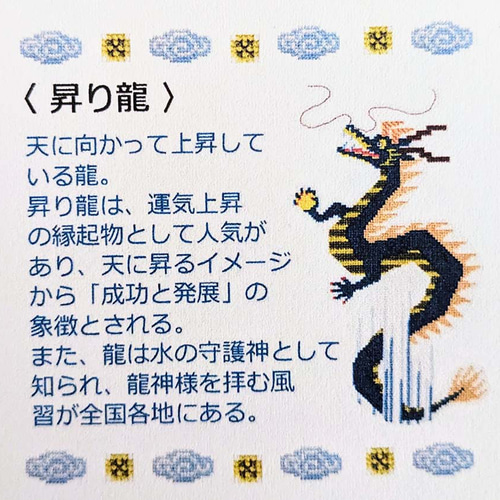 〈 昇り龍 〉
天に向かって上昇して
いる龍。
昇り龍は、運気上昇
の縁起物として人気が
あり、天に昇るイメージ
から「成功と発展」の
象徴とされる。
また、龍は水の守護神として
知られ、龍神様を拝む風
習が全国各地にある。